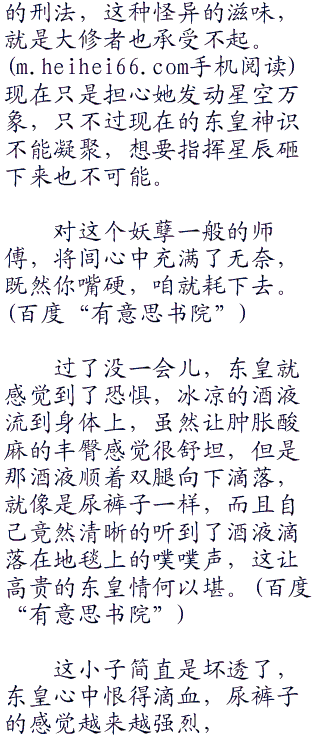 的刑法，这种怪异的滋味，
就是大修者也承受不起。
(m.heihei66.com手机阅读)
现在只是担心她发动星空万
象，只不过现在的东皇神识
不能凝聚，想要指挥星辰砸
下来也不可能。
对这个妖孽一般的师
傅，将闾心中充满了无奈，
既然你嘴硬，咱就耗下去。
(百度“有意思书院”)
过了没一会儿，东皇就
感觉到了恐惧，冰凉的酒液
流到身体上，虽然让肿胀酸
麻的丰臀感觉很舒坦，但是
那酒液顺着双腿向下滴落，
就像是尿裤子一样，而且自
己竟然清晰的听到了酒液滴
落在地毯上的噗噗声，这让
高贵的东皇情何以堪。(百度
“有意思书院”)
这小子简直是坏透了，
东皇心中恨得滴血，尿裤子
的感觉越来越强烈，